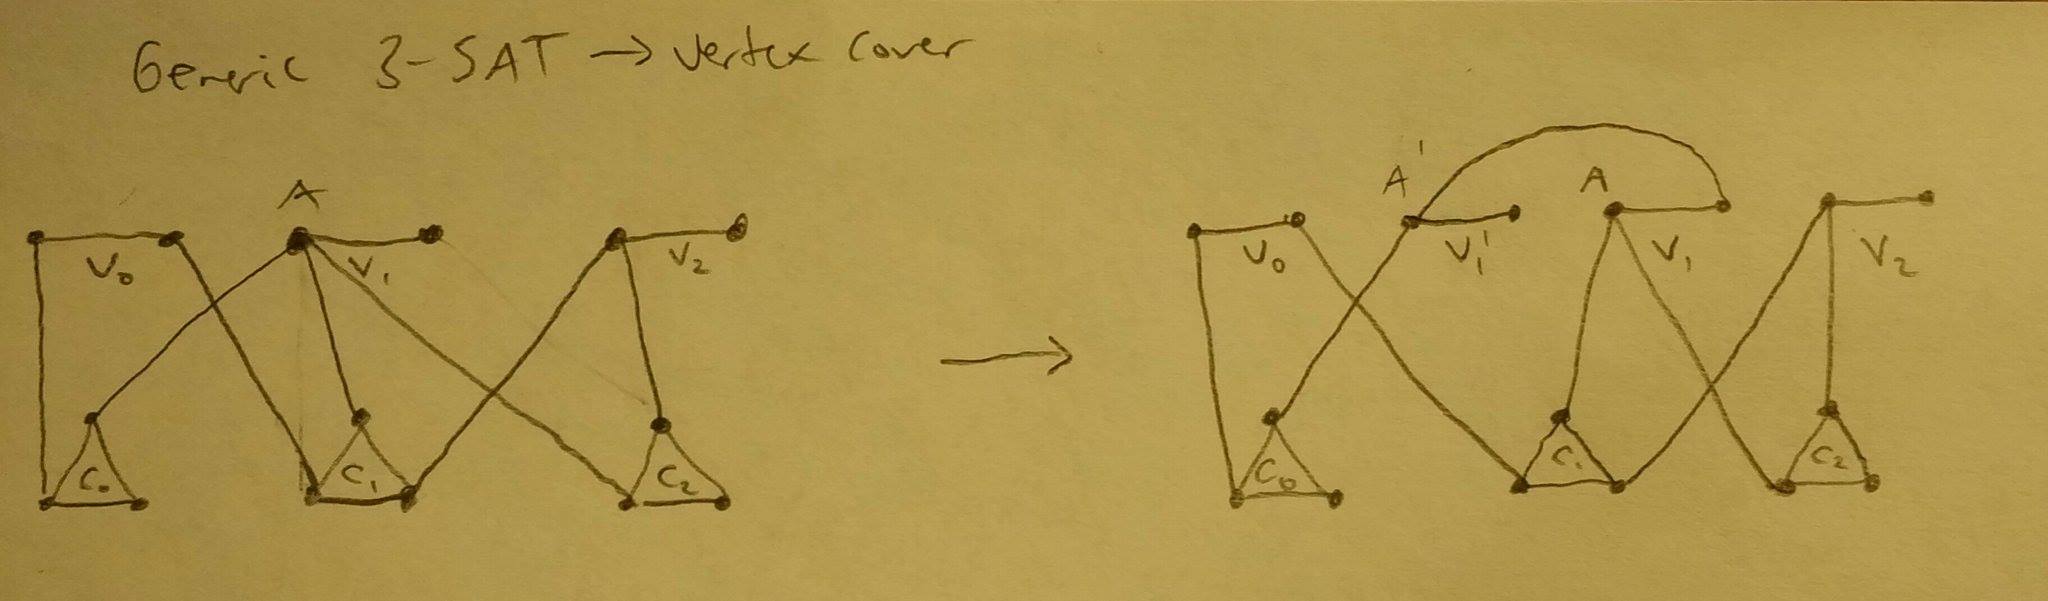 Generic 3-SAT → Vertex Cover
A
V₀ V₁ V₂
C₀ C₁ C₂
→
A' A
V₀ V₁' V₁ V₂
C₀ C₁ C₂